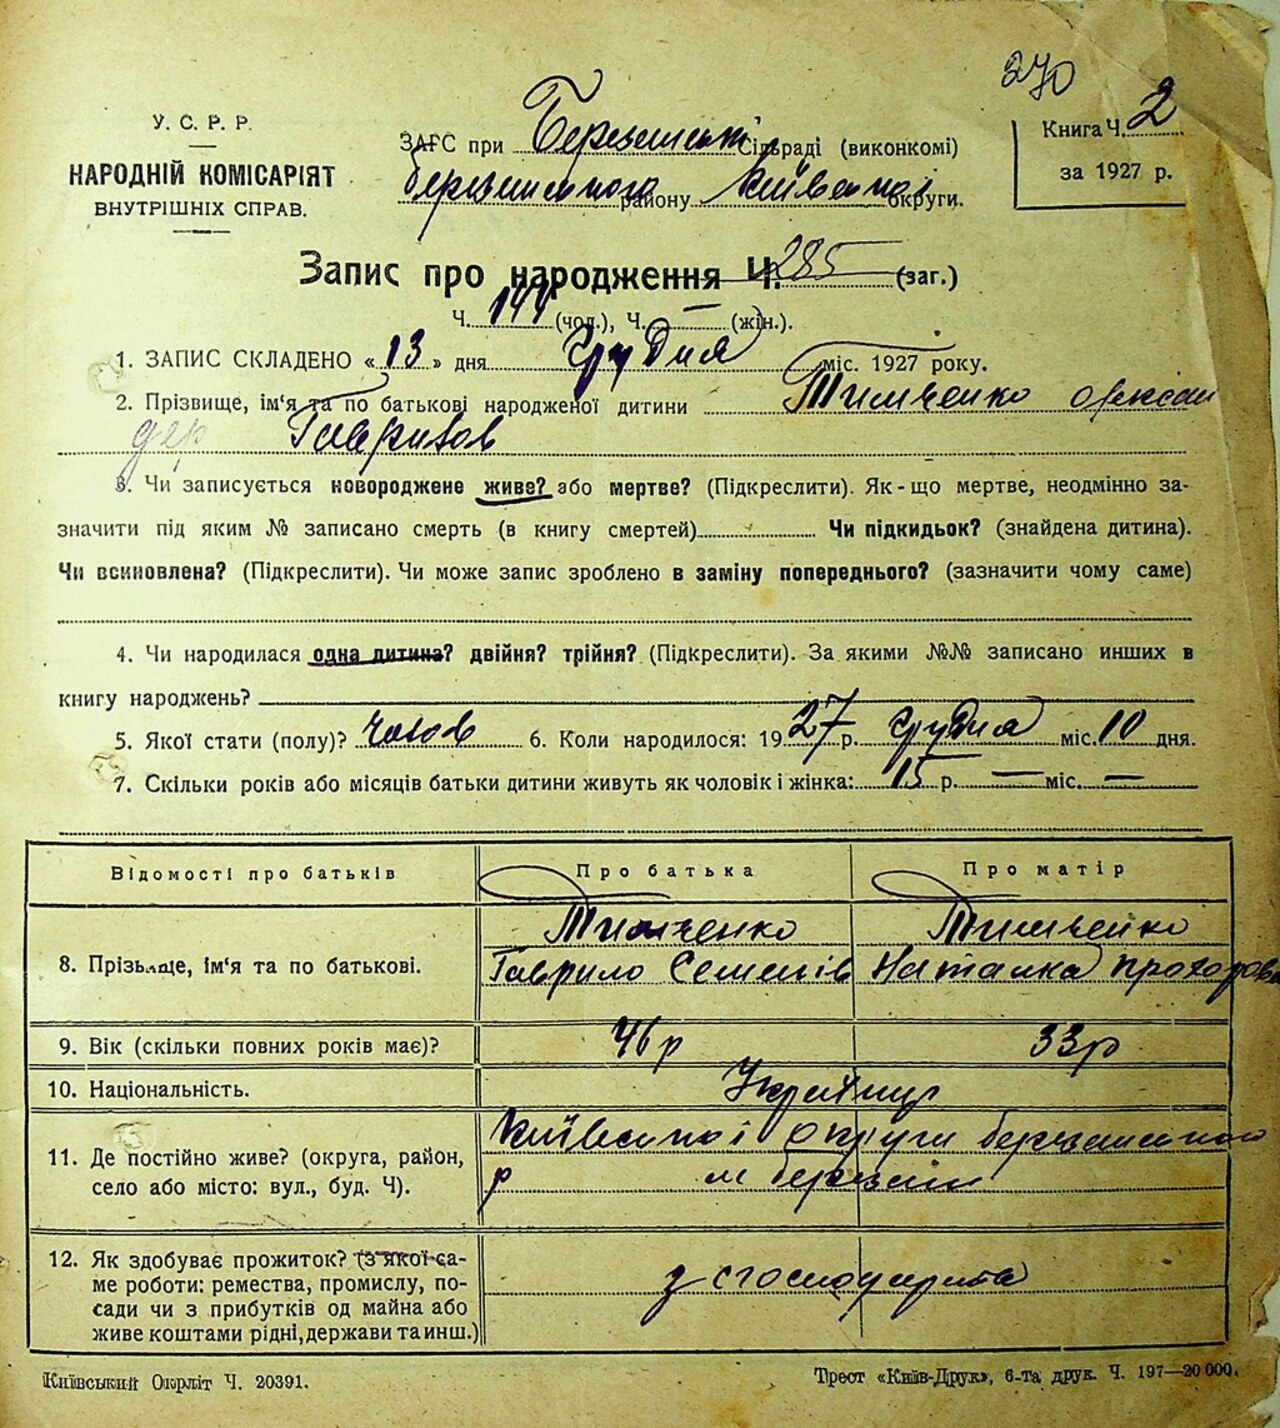 270
У. С. Р. Р.
НАРОДНІЙ КОМІСАРІЯТ
ВНУТРІШНІХ СПРАВ.
ЗАГС при Березанські Сільраді (виконкомі)
березанського району Київської округи.
Книга Ч. 2
за 1927 р.
Запис про народження Ч. 285 (заг.)
Ч. 144 (чол.), Ч. — (жін.).
1. ЗАПИС СКЛАДЕНО «13» дня Грудня міс. 1927 року.
2. Прізвище, ім'я та по батькові народженої дитини Тимченко Олексан
дер Гаврилов
3. Чи записується новороджене живе? або мертве? (Підкреслити). Як-що мертве, неодмінно за-
значити під яким № записано смерть (в книгу смертей) Чи підкидьок? (знайдена дитина).
Чи всиновлена? (Підкреслити). Чи може запис зроблено в заміну попереднього? (зазначити чому саме)
4. Чи народилася одна дитина? двійня? трійня? (Підкреслити). За якими №№ записано инших в
книгу народжень?
5. Якої стати (полу)? чолов 6. Коли народилося: 1927 р. Грудня міс. 10 дня.
7. Скільки років або місяців батьки дитини живуть як чоловік і жінка: 15 р. — міс. —
Відомості про батьків Про батька Про матір
8. Прізвище, ім'я та по батькові. Тимченко Тимченко
Гаврило Семенів Наталка Прохоровн
9. Вік (скільки повних років має)? 46 р 33 р
10. Національність. Українці
11. Де постійно живе? (округа, район,
село або місто: вул., буд. Ч). Київської округи березанського
р м березань
12. Як здобуває прожиток? (з якої са-
ме роботи: ремества, промислу, по-
сади чи з прибутків од майна або
живе коштами рідні, держави та инш.)
Київський Окрліт Ч. 20391.
Трест «Київ-Друк», 6-та друк. Ч. 197—20 000.